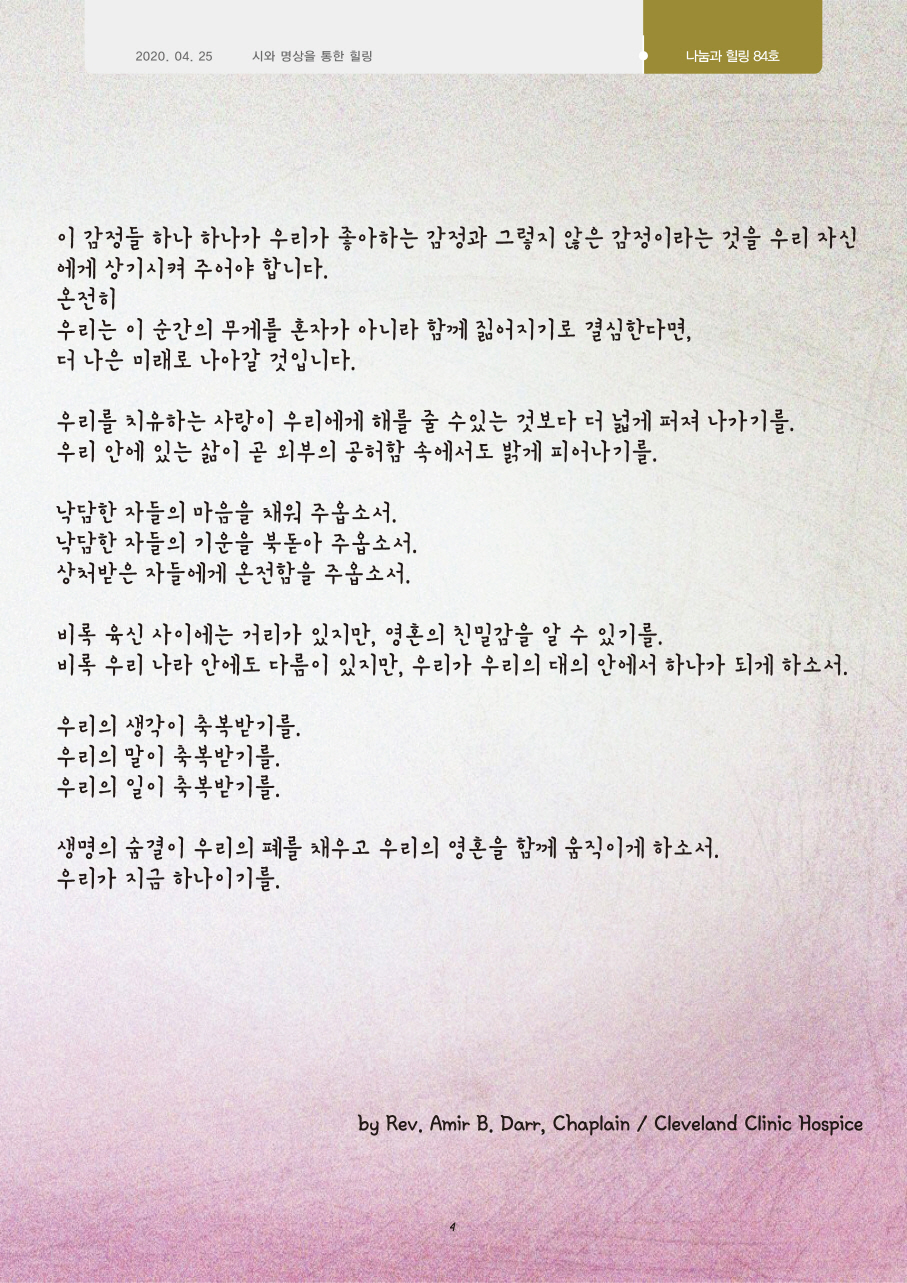 2020. 04. 25 시와 명상을 통한 힐링 나눔과 힐링 84호
이 감정들 하나 하나가 우리가 좋아하는 감정과 그렇지 않은 감정이라는 것을 우리 자신
에게 상기시켜 주어야 합니다.
온전히
우리는 이 순간의 무게를 혼자가 아니라 함께 짊어지기로 결심한다면,
더 나은 미래로 나아갈 것입니다.
우리를 치유하는 사랑이 우리에게 해를 줄 수있는 것보다 더 넓게 퍼져 나가기를.
우리 안에 있는 삶이 곧 외부의 공허함 속에서도 밝게 피어나기를.
낙담한 자들의 마음을 채워 주옵소서.
낙담한 자들의 기운을 북돋아 주옵소서.
상처받은 자들에게 온전함을 주옵소서.
비록 육신 사이에는 거리가 있지만, 영혼의 친밀감을 알 수 있기를.
비록 우리 나라 안에도 다름이 있지만, 우리가 우리의 대의 안에서 하나가 되게 하소서.
우리의 생각이 축복받기를.
우리의 말이 축복받기를.
우리의 일이 축복받기를.
생명의 숨결이 우리의 폐를 채우고 우리의 영혼을 함께 움직이게 하소서.
우리가 지금 하나이기를.
by Rev. Amir B. Darr, Chaplain / Cleveland Clinic Hospice
4